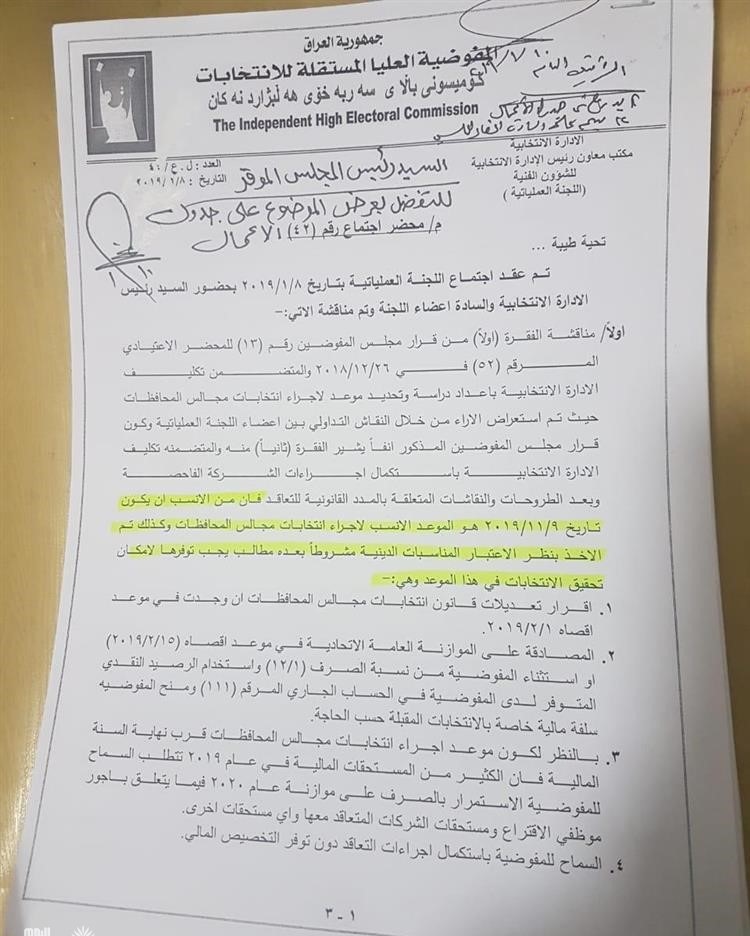 جمهورية العراق
المفوضية العليا المستقلة للانتخابات
كۆميسونى بالآى سه ربه خوى هه لبژارد نه كان
The Independent High Electoral Commission
الادارة الانتخابية
مكتب معاون رئيس الادارة الانتخابية
للشؤون الفنية
(اللجنة العملياتية)
العدد: ل.ع/٤٠
التاريخ: ٢٠١٩/١/٨
السيد رئيس المجلس الموقر
للتفضل بعرض الموضوع على جدول
الاعمال
م/ محضر اجتماع رقم (٤٢)
تحية طيبة ...
تم عقد اجتماع اللجنة العملياتية بتاريخ ٢٠١٩/١/٨ بحضور السيد رئيس
الادارة الانتخابية والسادة اعضاء اللجنة وتم مناقشة الاتي:-
اولاً/ مناقشة الفقرة (اولاً) من قرار مجلس المفوضين رقم (١٣) للمحضر الاعتيادي
المرقم (٥٢) في ٢٠١٨/١٢/٢٦ والمتضمن تكليف
الادارة الانتخابية باعداد دراسة وتحديد موعد لاجراء انتخابات مجالس المحافظات
حيث تم استعراض الاراء من خلال النقاش التداولي بين اعضاء اللجنة العملياتية وكون
قرار مجلس المفوضين المذكور انفاً يشير الفقرة (ثانياً) منه والمتضمنه تكليف
الادارة الانتخابية باستكمال اجراءات الشركة الفاحصة
وبعد الطروحات والنقاشات المتعلقة بالمدد القانونية للتعاقد فان من الانسب ان يكون
تاريخ ٢٠١٩/١١/٩ هو الموعد الانسب لاجراء انتخابات مجالس المحافظات وكذلك تم
الاخذ بنظر الاعتبار المناسبات الدينية مشروطاً بعده مطالب يجب توفرها لامكان
تحقيق الانتخابات في هذا الموعد وهي:-
١. اقرار تعديلات قانون انتخابات مجالس المحافظات ان وجدت في موعد
اقصاه ٢٠١٩/٢/١.
٢. المصادقة على الموازنة العامة الاتحادية في موعد اقصاه (٢٠١٩/٢/١٥)
او استثناء المفوضية من نسبة الصرف (١٢/١) واستخدام الرصيد النقدي
المتوفر لدى المفوضية في الحساب الجاري المرقم (١١١) ومنح المفوضيه
سلفة مالية خاصة بالانتخابات المقبلة حسب الحاجة.
٣. بالنظر لكون موعد اجراء انتخابات مجالس المحافظات قرب نهاية السنة
المالية فان الكثير من المستحقات المالية في عام ٢٠١٩ تتطلب السماح
للمفوضية الاستمرار بالصرف على موازنة عام ٢٠٢٠ فيما يتعلق باجور
موظفي الاقتراع ومستحقات الشركات المتعاقد معها واي مستحقات اخرى.
٤. السماح للمفوضية باستكمال اجراءات التعاقد دون توفر التخصيص المالي.
١ - ٣